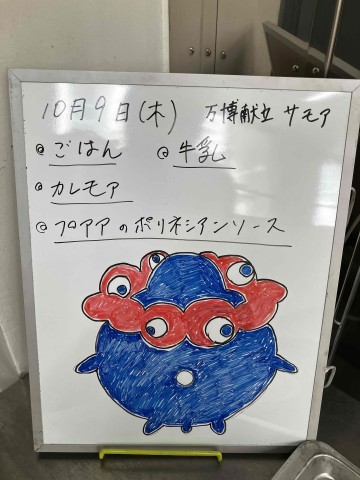 10月9日(木) 万博献立 サモア
◎ごはん ◎牛乳
◎カレモア
◎フロアアのポリネシアンソース